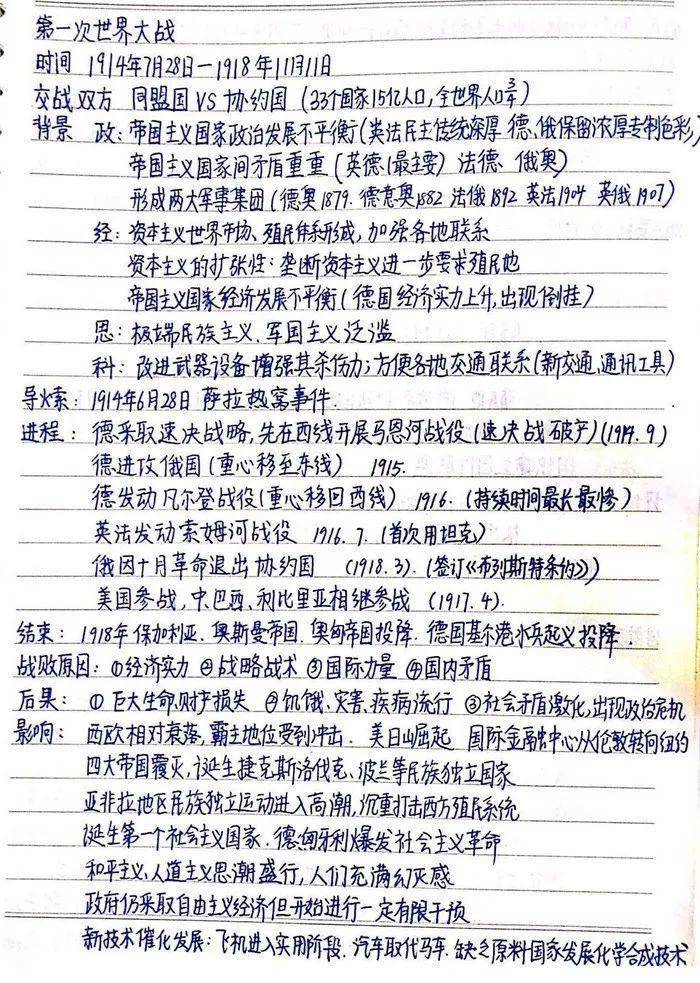 第一次世界大战
时间 1914年7月28日—1918年11月11日
交战双方 同盟国 VS 协约国 (33个国家15亿人口,全世界人口3/4)
背景 政: 帝国主义国家政治发展不平衡(英法民主传统深厚 德、俄保留浓厚专制色彩)
帝国主义国家间矛盾重重 (英德(最主要) 法德 俄奥)
形成两大军事集团 (德奥1879. 德意奥1882 法俄1892 英法1904 英俄1907)
经: 资本主义世界市场、殖民体系形成,加强各地联系
资本主义的扩张性: 垄断资本主义进一步要求殖民地
帝国主义国家经济发展不平衡(德国经济实力上升,出现倒挂)
思: 极端民族主义、军国主义泛滥
科: 改进武器设备增强其杀伤力;方便各地交通联系(新交通、通讯工具)
导火索: 1914年6月28日 萨拉热窝事件.
进程: 德采取速决战略,先在西线开展马恩河战役(速决战破产)(1914.9)
德进攻俄国(重心移至东线) 1915.
德发动凡尔登战役(重心移回西线) 1916. (持续时间最长最惨)
英法发动索姆河战役 1916.7. (首次用坦克)
俄因十月革命退出协约国 (1918.3). (签订《布列斯特条约》)
美国参战,中、巴西、利比里亚相继参战 (1917.4).
结束: 1918年保加利亚、奥斯曼帝国、奥匈帝国投降、德国基尔港水兵起义投降.
战败原因: ①经济实力 ②战略战术 ③国际力量 ④国内矛盾
后果: ① 巨大生命、财产损失 ②饥饿、灾害、疾病流行 ③社会矛盾激化,出现政治危机
影响: 西欧相对衰落,霸主地位受到冲击、美日崛起 国际金融中心从伦敦转向纽约
四大帝国覆灭,诞生捷克斯洛伐克、波兰等民族独立国家
亚非拉地区民族独立运动进入高潮,沉重打击西方殖民系统
诞生第一个社会主义国家、德、匈牙利爆发社会主义革命
和平主义、人道主义思潮盛行,人们充满幻灭感
政府仍采取自由主义经济但开始进行一定有限干预
新技术催化发展: 飞机进入实用阶段、汽车取代马车、缺乏原料国家发展化学合成技术